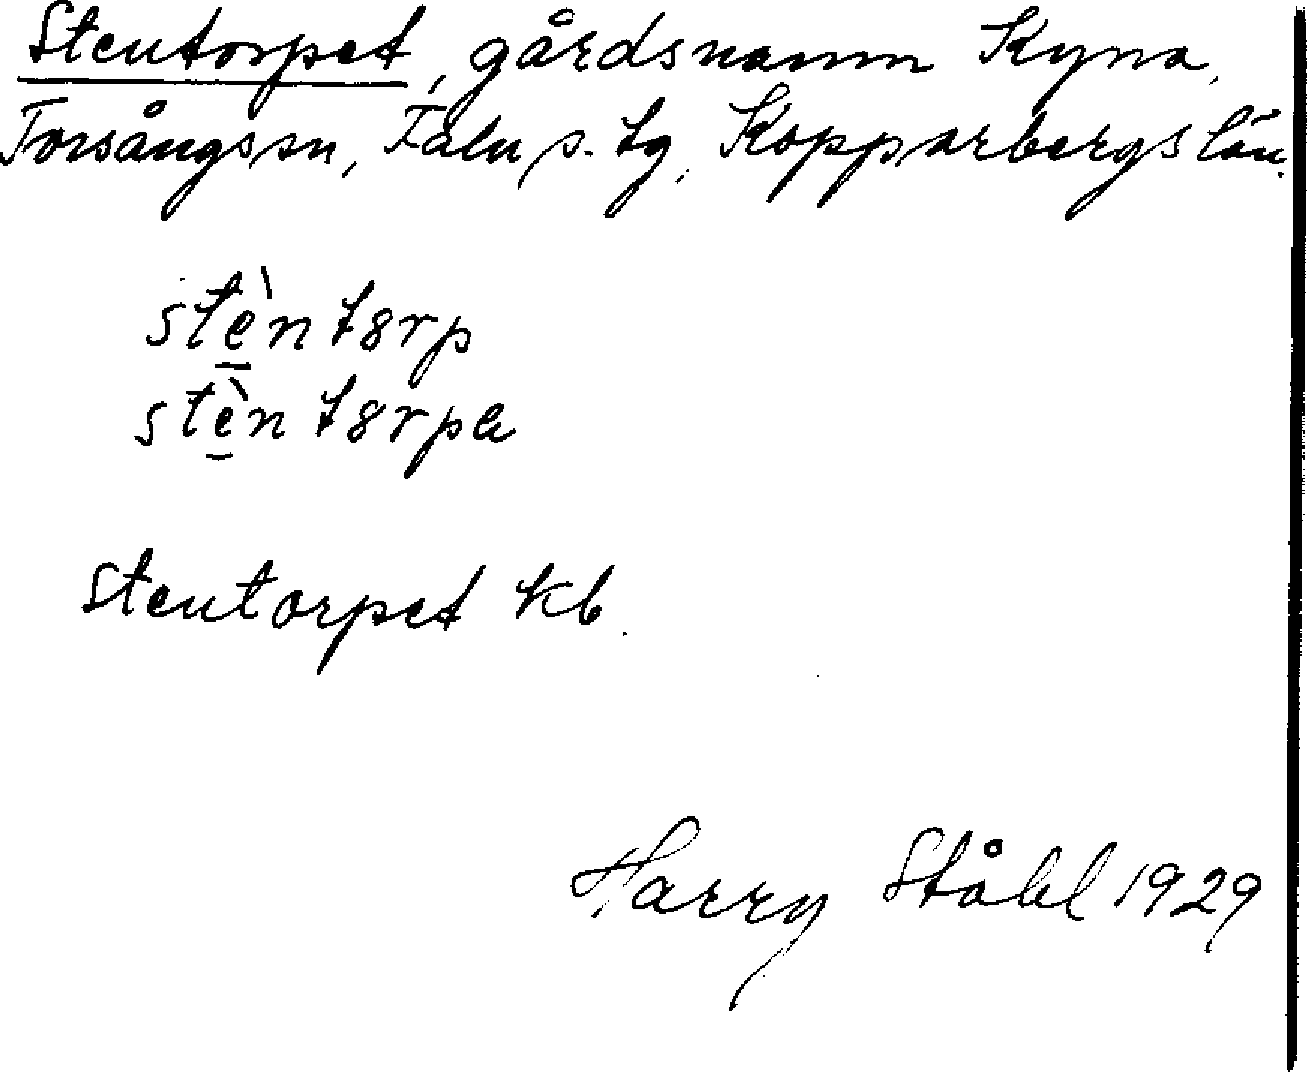 Stentorpet, gårdsnamn Kyna,
Torsångs sn, Falu s. tg, Kopparbergs län.
stè̲ntȣrp
stè̲ntȣrpa
Stentorpet kb.
Harry Ståhl 1929